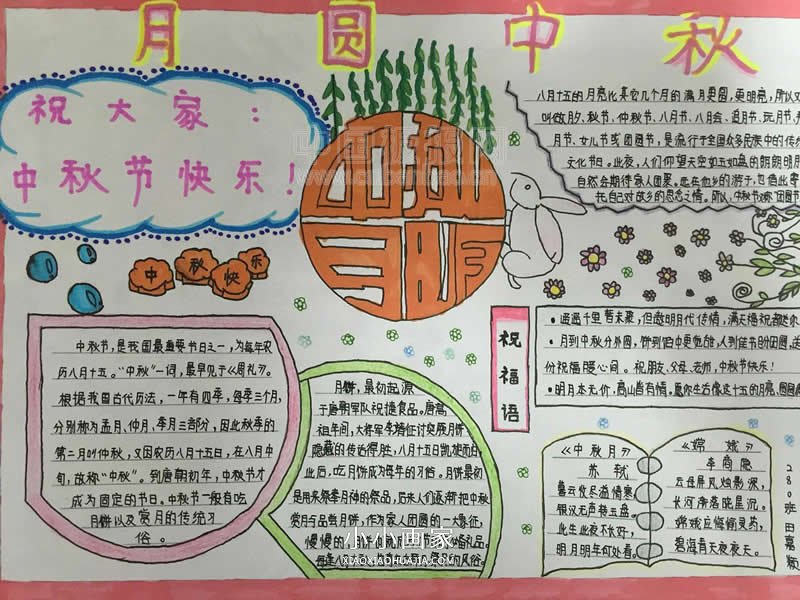 月圆中秋
祝大家：
中秋节快乐！
中秋
月明
中秋快乐
八月十五的月亮比其它几个月的满月更圆，更明亮，所以又
叫做月夕、秋节、仲秋节、八月节、八月会、追月节、玩月节、
月节、女儿节或团圆节，是流行于全国众多民族中的传统
文化节日。此夜，人们仰望天空如玉如盘的朗朗明月
自然会期待家人团聚。远在他乡的游子，也借此寄
托自己对故乡的思念之情。所以，中秋节又称"团圆节
中秋节，是我国最重要节日之一，为每年农
历八月十五。"中秋"一词，最早见于《周礼》。
根据我国古代历法，一年有四季，每季三个月，
分别称为孟月、仲月、季月三部分，因此秋季的
第二月叫仲秋，又因农历八月十五日，在八月中
旬，故称"中秋"。到唐朝初年，中秋节才
成为固定的节日。中秋节一般有吃
月饼以及赏月的传统习
俗。
月饼，最初起源
于唐朝军队祝捷食品。唐高
祖年间，大将军李靖征讨突厥月饼
隐藏的传话得胜，八月十五日凯旋而归。
此后，吃月饼成为每年的习俗。月饼最初
是用来祭奉月神的祭品，后来人们逐渐把中秋
赏月与品尝月饼，作为家人团圆的一大象征，
慢慢的，月饼也就成了节日的必备礼品。
祝福语
遥遥千里暂未聚，但邀明月代传情，满天福祝都
月到中秋分外圆，饼到口中更饱
份祝福暖心间。祝朋友、父母、老师，中秋节快乐！
明月本无价，高山皆有情。愿你生方像这十五的月亮，圆圆
《中秋月》
苏轼
暮云收尽溢清寒，
银汉无声转玉盘。
此生此夜不长好，
明月明年何处看。
《嫦娥》
李商隐
云母屏风烛影深，
长河渐落晓星沉。
嫦娥应悔偷灵药，
碧海青天夜夜天。
280班田嘉颖
小小画家
XIAOXIAOHUAJIA.COM